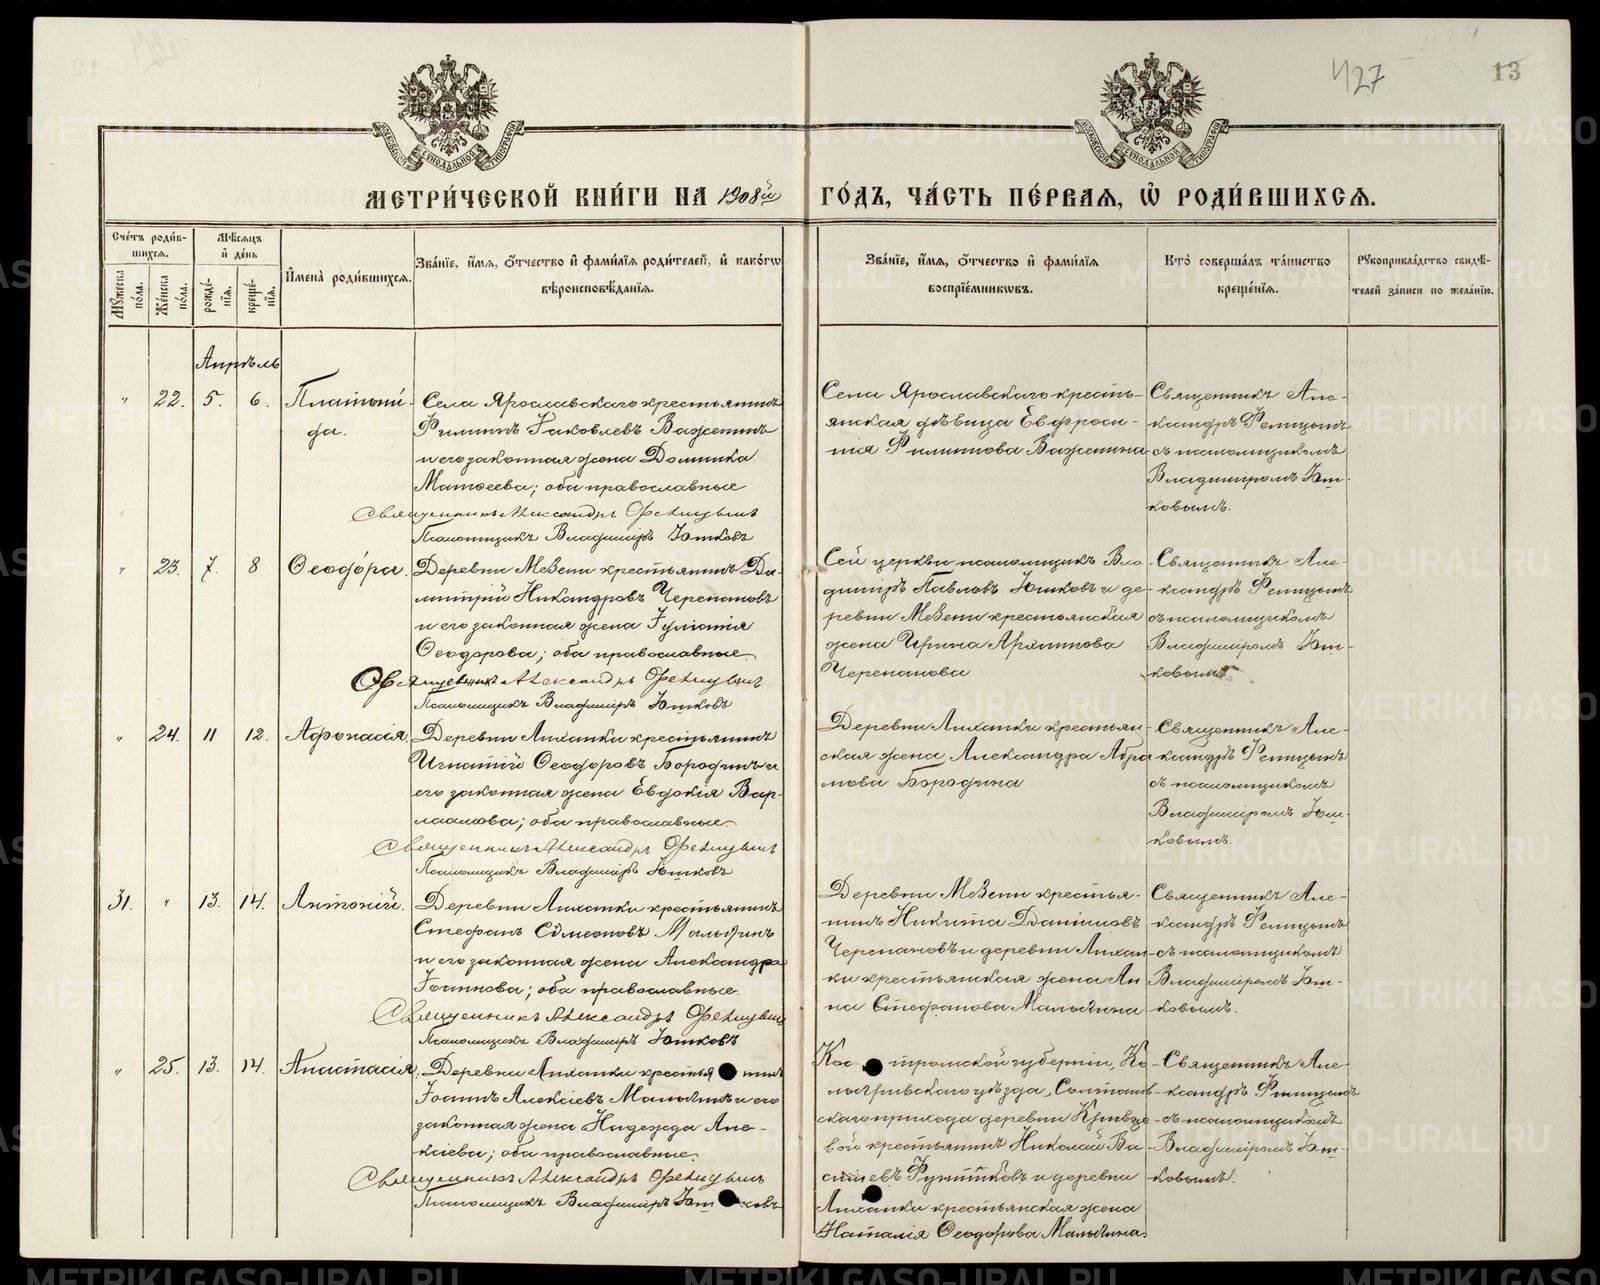 427
13
МОСКОВСКОЙ СѴНОДАЛЬНОЙ ТИПОГРАФІИ
МОСКОВСКОЙ СѴНОДАЛЬНОЙ ТИПОГРАФІИ
МЕТРИ́ЧЕСКОЙ КНИ́ГИ НА 1908й ГО́ДЪ, ЧА́СТЬ ПЕ́РВАѦ, Ѡ҆ РОДИ́ВШИХСѦ.
Сче́тъ роди́в-
шихсѧ.
Мꙋ́жеска по́ла.
Же́нска по́ла.
Мѣ́сѧцъ
и҆ де́нь
рожде́-
нїѧ.
креще́-
нїѧ.
И҆мена̀ роди́вшихсѧ.
Зва́нїе, и҆́мѧ, ѻ҆́тчество и҆ фами́лїѧ роди́телей, и҆ како́гѡ
вѣроисповѣ́данїѧ.
Зва́нїе, и҆́мѧ, ѻ҆́тчество и҆ фами́лїѧ
воспрїе́мникѡвъ.
Кто̀ соверша́лъ та́инство
креще́нїѧ.
Рꙋкоприкла́дство свидѣ́-
телей за́писи по жела́нїю.
Апрѣль
" 22. 5. 6. Платони-
да.
Села Ярославскаго крестьянинъ
Филиппъ Іаковлевъ Важенинъ
и его законная жена Домника
Матѳеева; оба православные
Священникъ Александръ Фелицынъ
Псаломщикъ Владиміръ Юшковъ
Села Ярославскаго кресть-
янская дѣвица Евфроси-
нія Филиппова Важенина
Священникъ Але-
ксандръ Фелицынъ
съ псаломщикомъ
Владиміромъ Юш-
ковымъ.
" 23. 7. 8 Ѳеодора.
Деревни Мезени крестьянинъ Ди-
митрій Никандровъ Черепановъ
и его законная жена Іуліанія
Ѳеодорова; оба православные.
Священникъ Александръ Фелицынъ
Псаломщикъ Владиміръ Юшковъ
Сей церкви псаломщикъ Вла-
диміръ Павловъ Юшковъ и де-
ревни Мезени крестьянская
жена Ирина
Черепанова
Священникъ Але-
ксандръ Фелицынъ
съ псаломщикомъ
Владиміромъ Юш-
ковымъ
" 24. 11 12. Афанасія.
Деревни Лиханки крестьянинъ
Игнатій Ѳеодоровъ Бородинъ и
его законная жена Евдокія Вар-
лаамова; оба православные.
Священникъ Александръ Фелицынъ
Псаломщикъ Владиміръ Юшковъ
Деревни Лиханки крестьян-
ская жена Александра Абра
мова Бородина
Священникъ Але-
ксандръ Фелицынъ
съ псаломщикомъ
Владиміромъ Юш-
ковымъ.
31. " 13. 14. Антоній.
Деревни Лиханки крестьянинъ
Стефанъ Сѵмеоновъ Малыгинъ
и его законная жена Александра
Іоаннова; оба православные.
Священникъ Александръ Фелицынъ
Псаломщикъ Владиміръ Юшковъ
Деревни Мезени крестья-
нинъ Никита Даніиловъ
Черепановъ и деревни Лихан-
ки крестьянская жена Ан
на Стефанова Малыгина
Священникъ Але-
ксандръ Фелицынъ
съ псаломщикомъ
Владиміромъ Юш-
ковымъ.
" 25. 13. 14. Анастасія.
Деревни Лиханки крестьянинъ
Іоаннъ Алексіевъ Малыгинъ и его
законная жена Надежда Але-
ксіева; оба православные.
Священникъ Александръ Фелицынъ
Псаломщикъ Владиміръ Юшковъ
Костромской губерніи, Ко-
логривскаго уѣзда,
скаго прихода деревни
вой крестьянинъ Николай Ва-
сильевъ и деревни
Лиханки крестьянская жена
Наталія Ѳеодорова Малыгина
Священникъ Але-
ксандръ Фелицынъ
съ псаломщикомъ
Владиміромъ Юш-
ковымъ.
METRIKI.GASO-URAL.RU